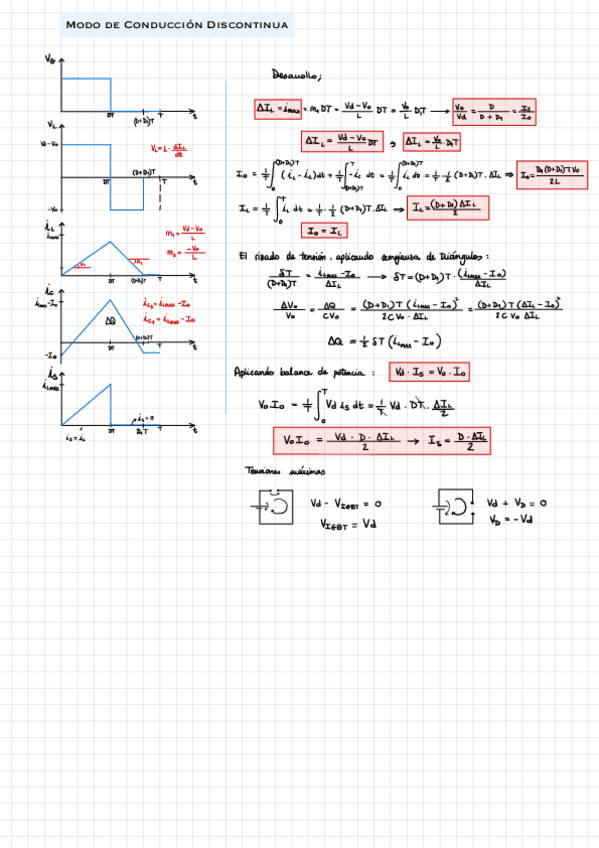 MODO DE CONDUCCIÓN DISCONTINUA
VG
DT (D+D₁)T T t
VL
Vd-Vo
-Vo
(D+D₁)T
DT T t
VL = L · ΔIL/dt
iL
iLmax
m₁ = (Vd-Vo)/L
m₂ = -Vo/L
DT (D+D₁)T T t
iC
iLmax-Io
-Io
ΔQ
iC1 = iLmax-Io
DT (D+D₁)T T t
iS
iLmax
iS=0
DT D₁T T t
iS = iL
Desarrollo;
ΔIL = imax = m₁ DT = (Vd-Vo)/L DT = Vo/L D₁T → Vo/Vd = D/(D+D₁) = IS/Io
ΔIL = (Vd-Vo)/L DT ; ΔIL = Vo/L · D₁T
Io = D₁(D+D₁)T Vo/2L
IL = 1/T ∫₀ᵀ iL dt = 1/T · 1/2 (D+D₁)T · ΔIL → IL = (D+D₁)ΔIL/2
Io = IL
El rizado de tensión, aplicando semejanza de triángulos:
δT/(D+D₁)T = (iLmax-Io)/ΔIL → δT = (D+D₁)T · (iLmax-Io)/ΔIL
ΔVo/Vo = ΔQ/CVo = (D+D₁)T (iLmax-Io)²/(2CVo · ΔIL) = (D+D₁)T (ΔIL-Io)²/(2CVo ΔIL)
ΔQ = ½ δT (iLmax-Io)
Aplicando balance de potencia: Vd · IS = Vo · Io
VoIo = 1/T ∫₀ᵀ Vd iS dt = 1/T Vd · DT · ΔIL/2
VoIo = Vd · D · ΔIL/2 → IS = D · ΔIL/2
Tensiones máximas
Vd - VIGBT = 0
VIGBT = Vd
Vd + VD = 0
VD = -Vd